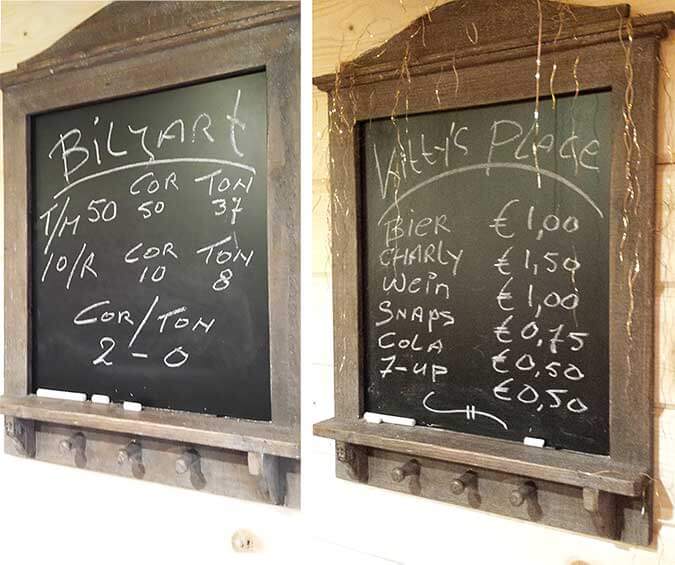 BilYARt
COR TON
T/M 50 50 37
10/R COR TON
10 8
COR/TON
2 - 0
Kitty's PLACE
BiER € 1,00
CHARLY € 1,50
WEiN € 1,00
SNAPS € 0,75
COLA € 0,50
7-UP € 0,50